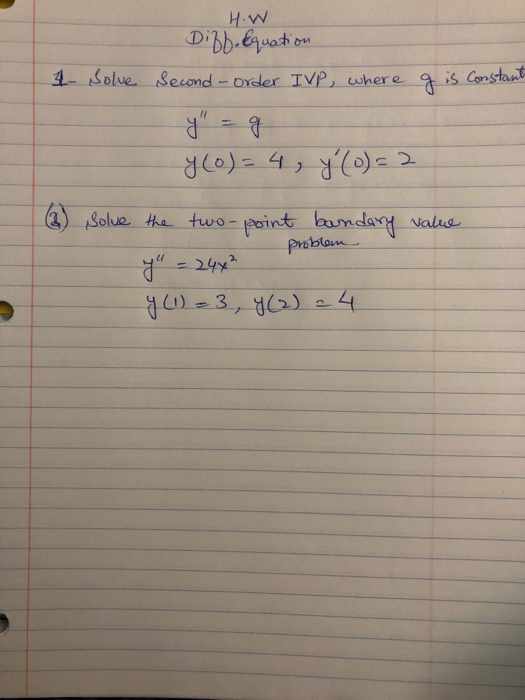 H.W
Diff. Equation
1- Solve Second-order IVP, where g is Constant
y" = g
y(0) = 4, y'(0) = 2
(2) Solve the two-point bundary value
problem
y" = 24x²
y(1) = 3, y(2) = 4